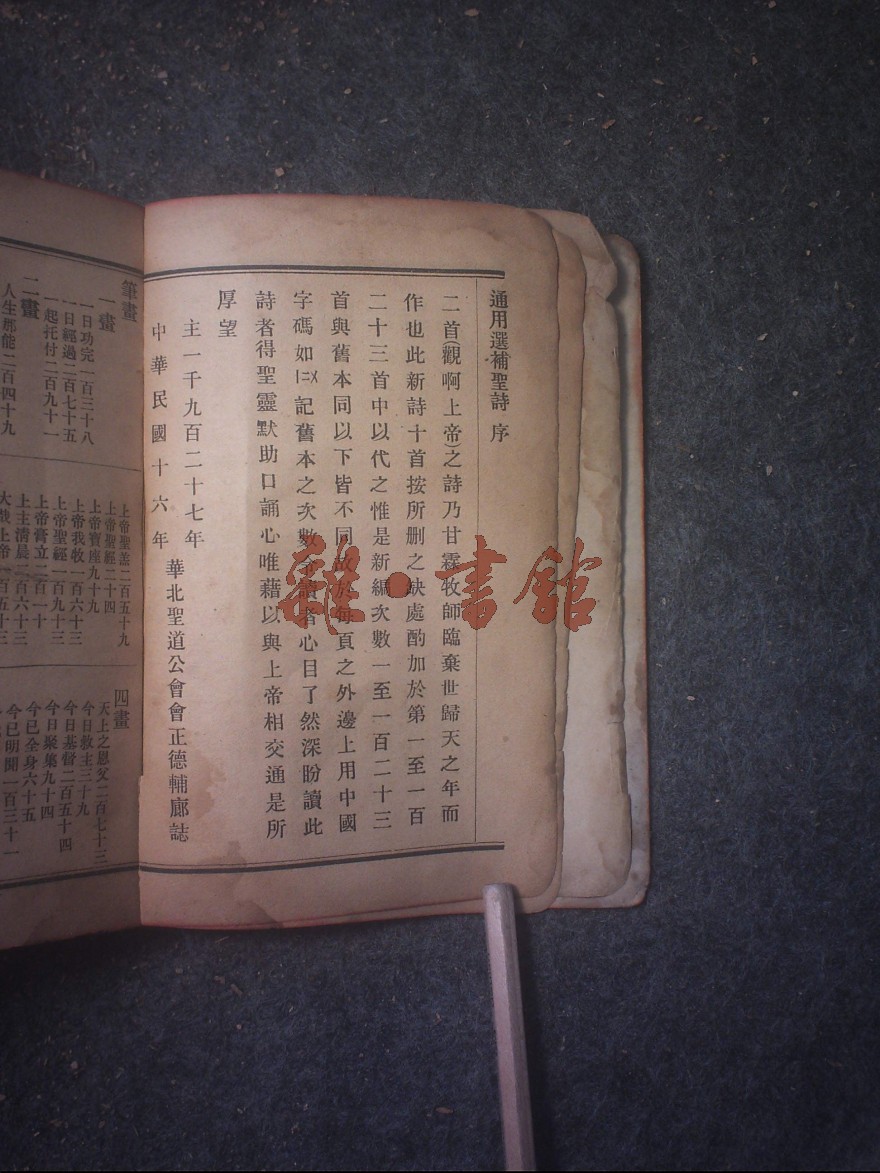 通用選補聖詩 序
二首(觀啊上帝)之詩乃甘霖牧師臨棄世歸天之年而
作也此新詩十首按所删之缺處酌加於第一至一百
二十三首中以代之惟是新編次數一至一百二十三
首與舊本同以下皆不同故於每頁之外邊上用中國
字碼如 記舊本之次數令讀者心目了然深盼讀此
詩者得聖靈默助口誦心唯藉以與上帝相交通是所
厚望
主一千九百二十七年
中華民國十六年
華北聖道公會會正德輔廊誌
筆畫
一畫
一日功完一百三十八
一日經過二百七十五
一起托付二百九十一
二畫
人生那能二百四十九
上帝聖誥二百五十九
上帝聖經二十四
上帝寶座九十九
上帝我牧一百六十三
上帝聖經一百九十三
上帝膏立二百一十
上主清晨二百六十三
四畫
天上之恩父二百七十三
今日救主三十九
今日基督二百五十四
今日聚集九十四
今已全身六十五
今已明聞一百三十一
雜·書館